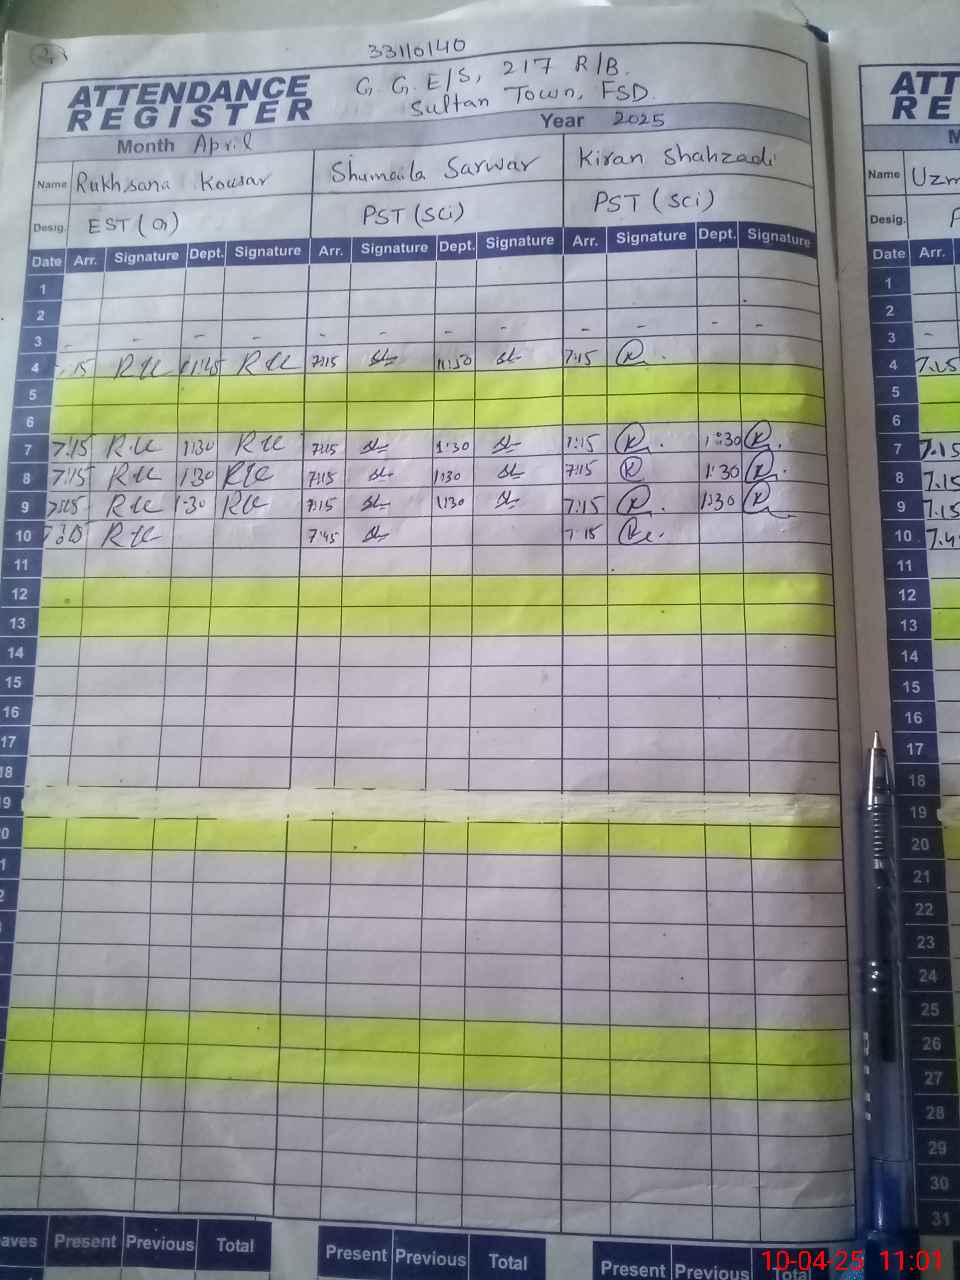 33110140
G. G. E/S, 217 R/B.
Sultan Town, FSD.
ATTENDANCE
REGISTER
Month April Year 2025
Name Rukhsana Kousar Shumaila Sarwar Kiran Shahzadi
Desig. EST (G) PST (Sci) PST (Sci)
Date Arr. Signature Dept. Signature Arr. Signature Dept. Signature Arr. Signature Dept. Signature
1
2
3 - - - - - - - - - - -
4 RK 11:45 RK 7:15 11:50 7:15 K
5
6
7 7:15 RK 1:30 RK 7:15 1:30 7:15 K 1:30 K
8 7:15 RK 1:30 RK 7:15 1:30 7:15 K 1:30 K
9 7:15 RK 1:30 RK 7:15 1:30 7:15 K 1:30 K
10 RK 7:45 7:15
11
12
13
14
15
16
17
18
19
20
Present Previous Total Present Previous Total Present Previous Total
ATT
RE
Name Uzm
Desig.
Date Arr.
1
2
3 -
4 7.15
5
6
7 7.15
8 7.15
9 7.15
10 7.4
11
12
13
14
15
16
17
18
19
20
21
22
23
24
25
26
27
28
29
30
31
10-04-25 11:01